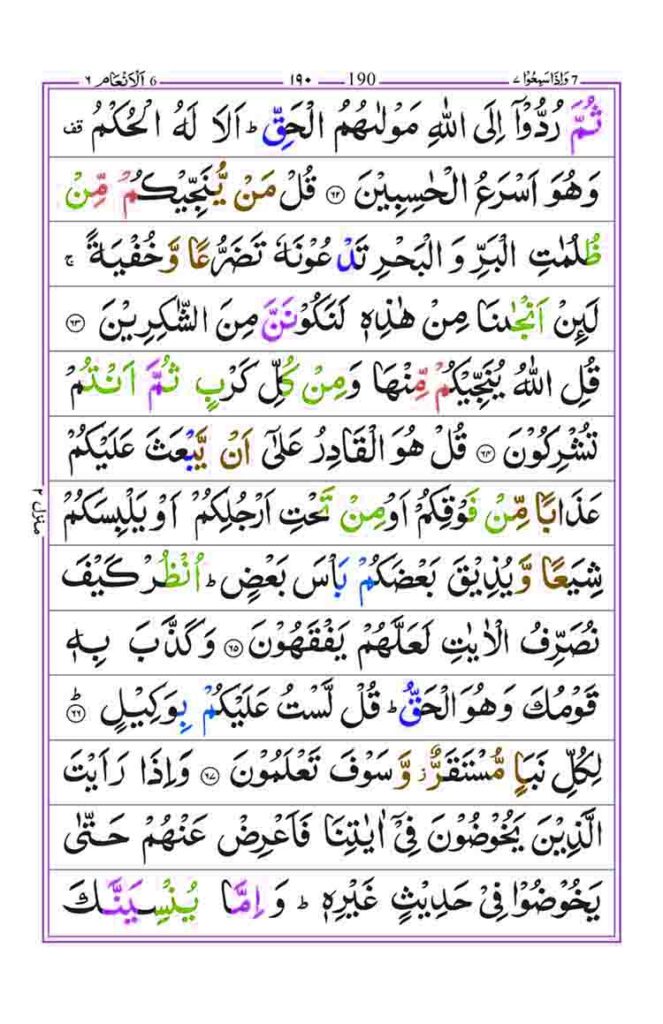 6 اَلْاَنْعَام ٦ ١٩٠ 190 7 وَاِذَاسَمِعُوْا ٧
ثُمَّ رُدُّوْۤا اِلَى اللّٰهِ مَوْلٰىهُمُ الْحَقِّ ؕ اَلَا لَهُ الْحُكْمُ قف
وَهُوَ اَسْرَعُ الْحٰسِبِيْنَ ﴿٦٢﴾ قُلْ مَنْ يُّنَجِّيْكُمْ مِّنْ
ظُلُمٰتِ الْبَرِّ وَ الْبَحْرِ تَدْعُوْنَهٗ تَضَرُّعًا وَّخُفْيَةً ۚ
لَىِٕنْ اَنْجٰىنَا مِنْ هٰذِهٖ لَنَكُوْنَنَّ مِنَ الشّٰكِرِيْنَ ﴿٦٣﴾
قُلِ اللّٰهُ يُنَجِّيْكُمْ مِّنْهَا وَمِنْ كُلِّ كَرْبٍ ثُمَّ اَنْتُمْ
تُشْرِكُوْنَ ﴿٦٤﴾ قُلْ هُوَ الْقَادِرُ عَلٰۤى اَنْ يَّبْعَثَ عَلَيْكُمْ
عَذَابًا مِّنْ فَوْقِكُمْ اَوْمِنْ تَحْتِ اَرْجُلِكُمْ اَوْيَلْبِسَكُمْ
شِيَعًا وَّيُذِيْقَ بَعْضَكُمْ بَاْسَ بَعْضٍ ؕ اُنْظُرْ كَيْفَ
نُصَرِّفُ الْاٰيٰتِ لَعَلَّهُمْ يَفْقَهُوْنَ ﴿٦٥﴾ وَكَذَّبَ بِهٖ
قَوْمُكَ وَهُوَ الْحَقُّ ؕ قُلْ لَّسْتُ عَلَيْكُمْ بِوَكِيْلٍ ؕ﴿٦٦﴾
لِكُلِّ نَبَاٍ مُّسْتَقَرٌّ ؗ وَّسَوْفَ تَعْلَمُوْنَ ﴿٦٧﴾ وَاِذَا رَاَيْتَ
الَّذِيْنَ يَخُوْضُوْنَ فِيْۤ اٰيٰتِنَا فَاَعْرِضْ عَنْهُمْ حَتّٰى
يَخُوْضُوْا فِيْ حَدِيْثٍ غَيْرِهٖ ؕ وَ اِمَّا يُنْسِيَنَّكَ
منزل ٢